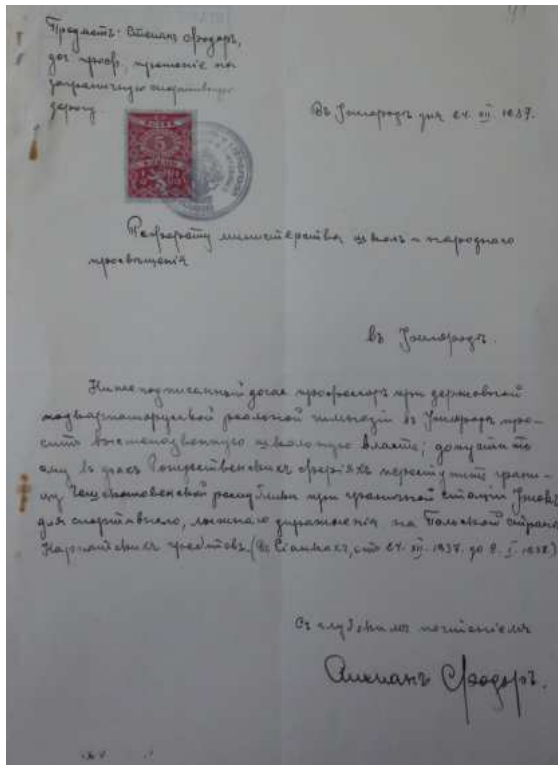 Предметъ: Стоианъ Ѳеодоръ,
доч. проф., прошенiе на
заграничную спортивную
дорогу
Въ Ужгородѣ дня 24. XII. 1937.
5
Реферату министерства школъ и народнаго
просвѣщенiя
въ Ужгородѣ.
Нижеподписанный доч. профессоръ при державной
подкарпаторусской реальной гимназiи въ Ужгородѣ про-
ситъ вышеназванную школьную власть; допустити
ему въ часѣ Рождественскихъ ферiяхъ переступить грани-
цу Чешскословенской республики при граничной стацiи Ужок
для спортивного, лыжнаго упражненiя на Польской странѣ
Карпатскихъ хребтовъ. (Въ Сiанкахъ, отъ 24. XII. 1937. до 9. I. 1938)
Съ глубокимъ почтенiемъ
Ѳеодоръ.